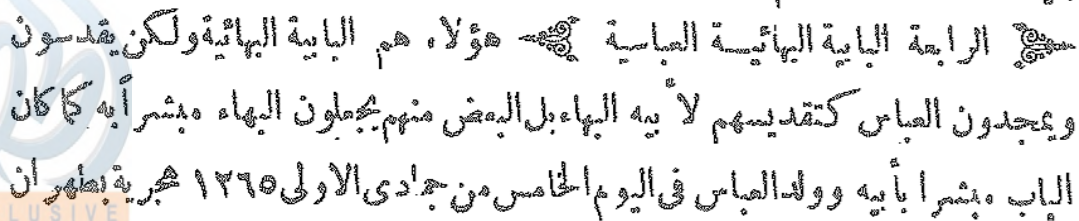 الرابعة البابية البهائيـة العباسية هؤلاء هم البابية البهائية ولكن يقدسون
ويمجدون العباس كتقديسهم لأبيه البهاء بل البعض منهم يجعلون البهاء مبشرا به كما كان
الباب مبشرا بأبيه وولد العباس فى اليوم الخامس من جمادى الاولى ١٢٦٥ هجرية بطهران
LUSIVE